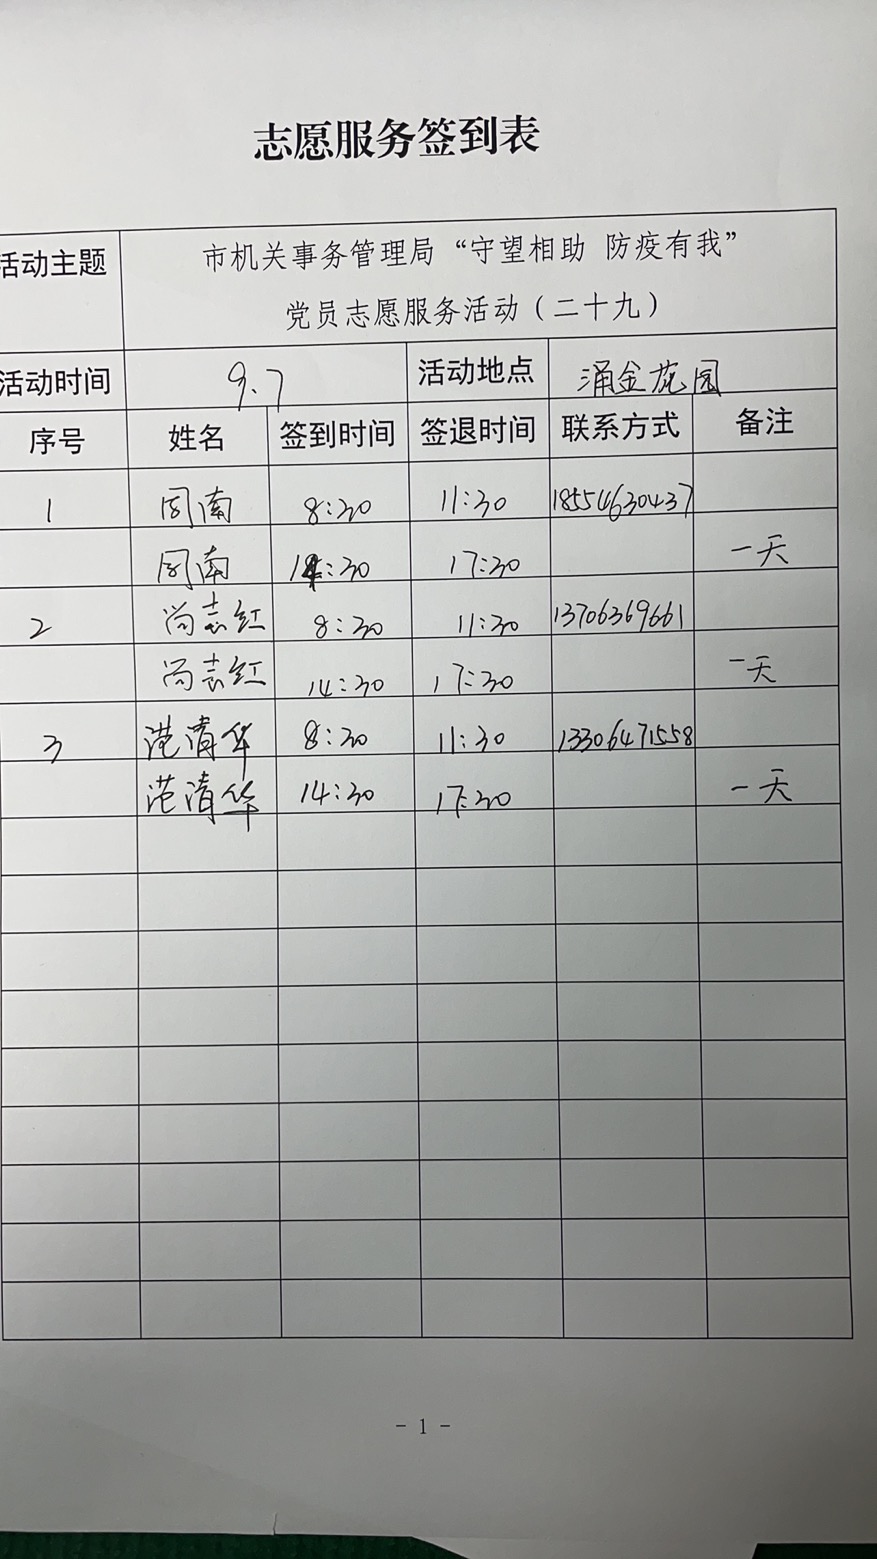 志愿服务签到表
活动主题 市机关事务管理局“守望相助 防疫有我”
党员志愿服务活动（二十九）
活动时间 9.7 活动地点 涌金花园
序号 姓名 签到时间 签退时间 联系方式 备注
1 周南 8:30 11:30 18554630437
周南 14:30 17:30 一天
2 尚志红 8:30 11:30 13706369661
尚志红 14:30 17:30 一天
3 范清华 8:30 11:30 13306471558
范清华 14:30 17:30 一天
- 1 -